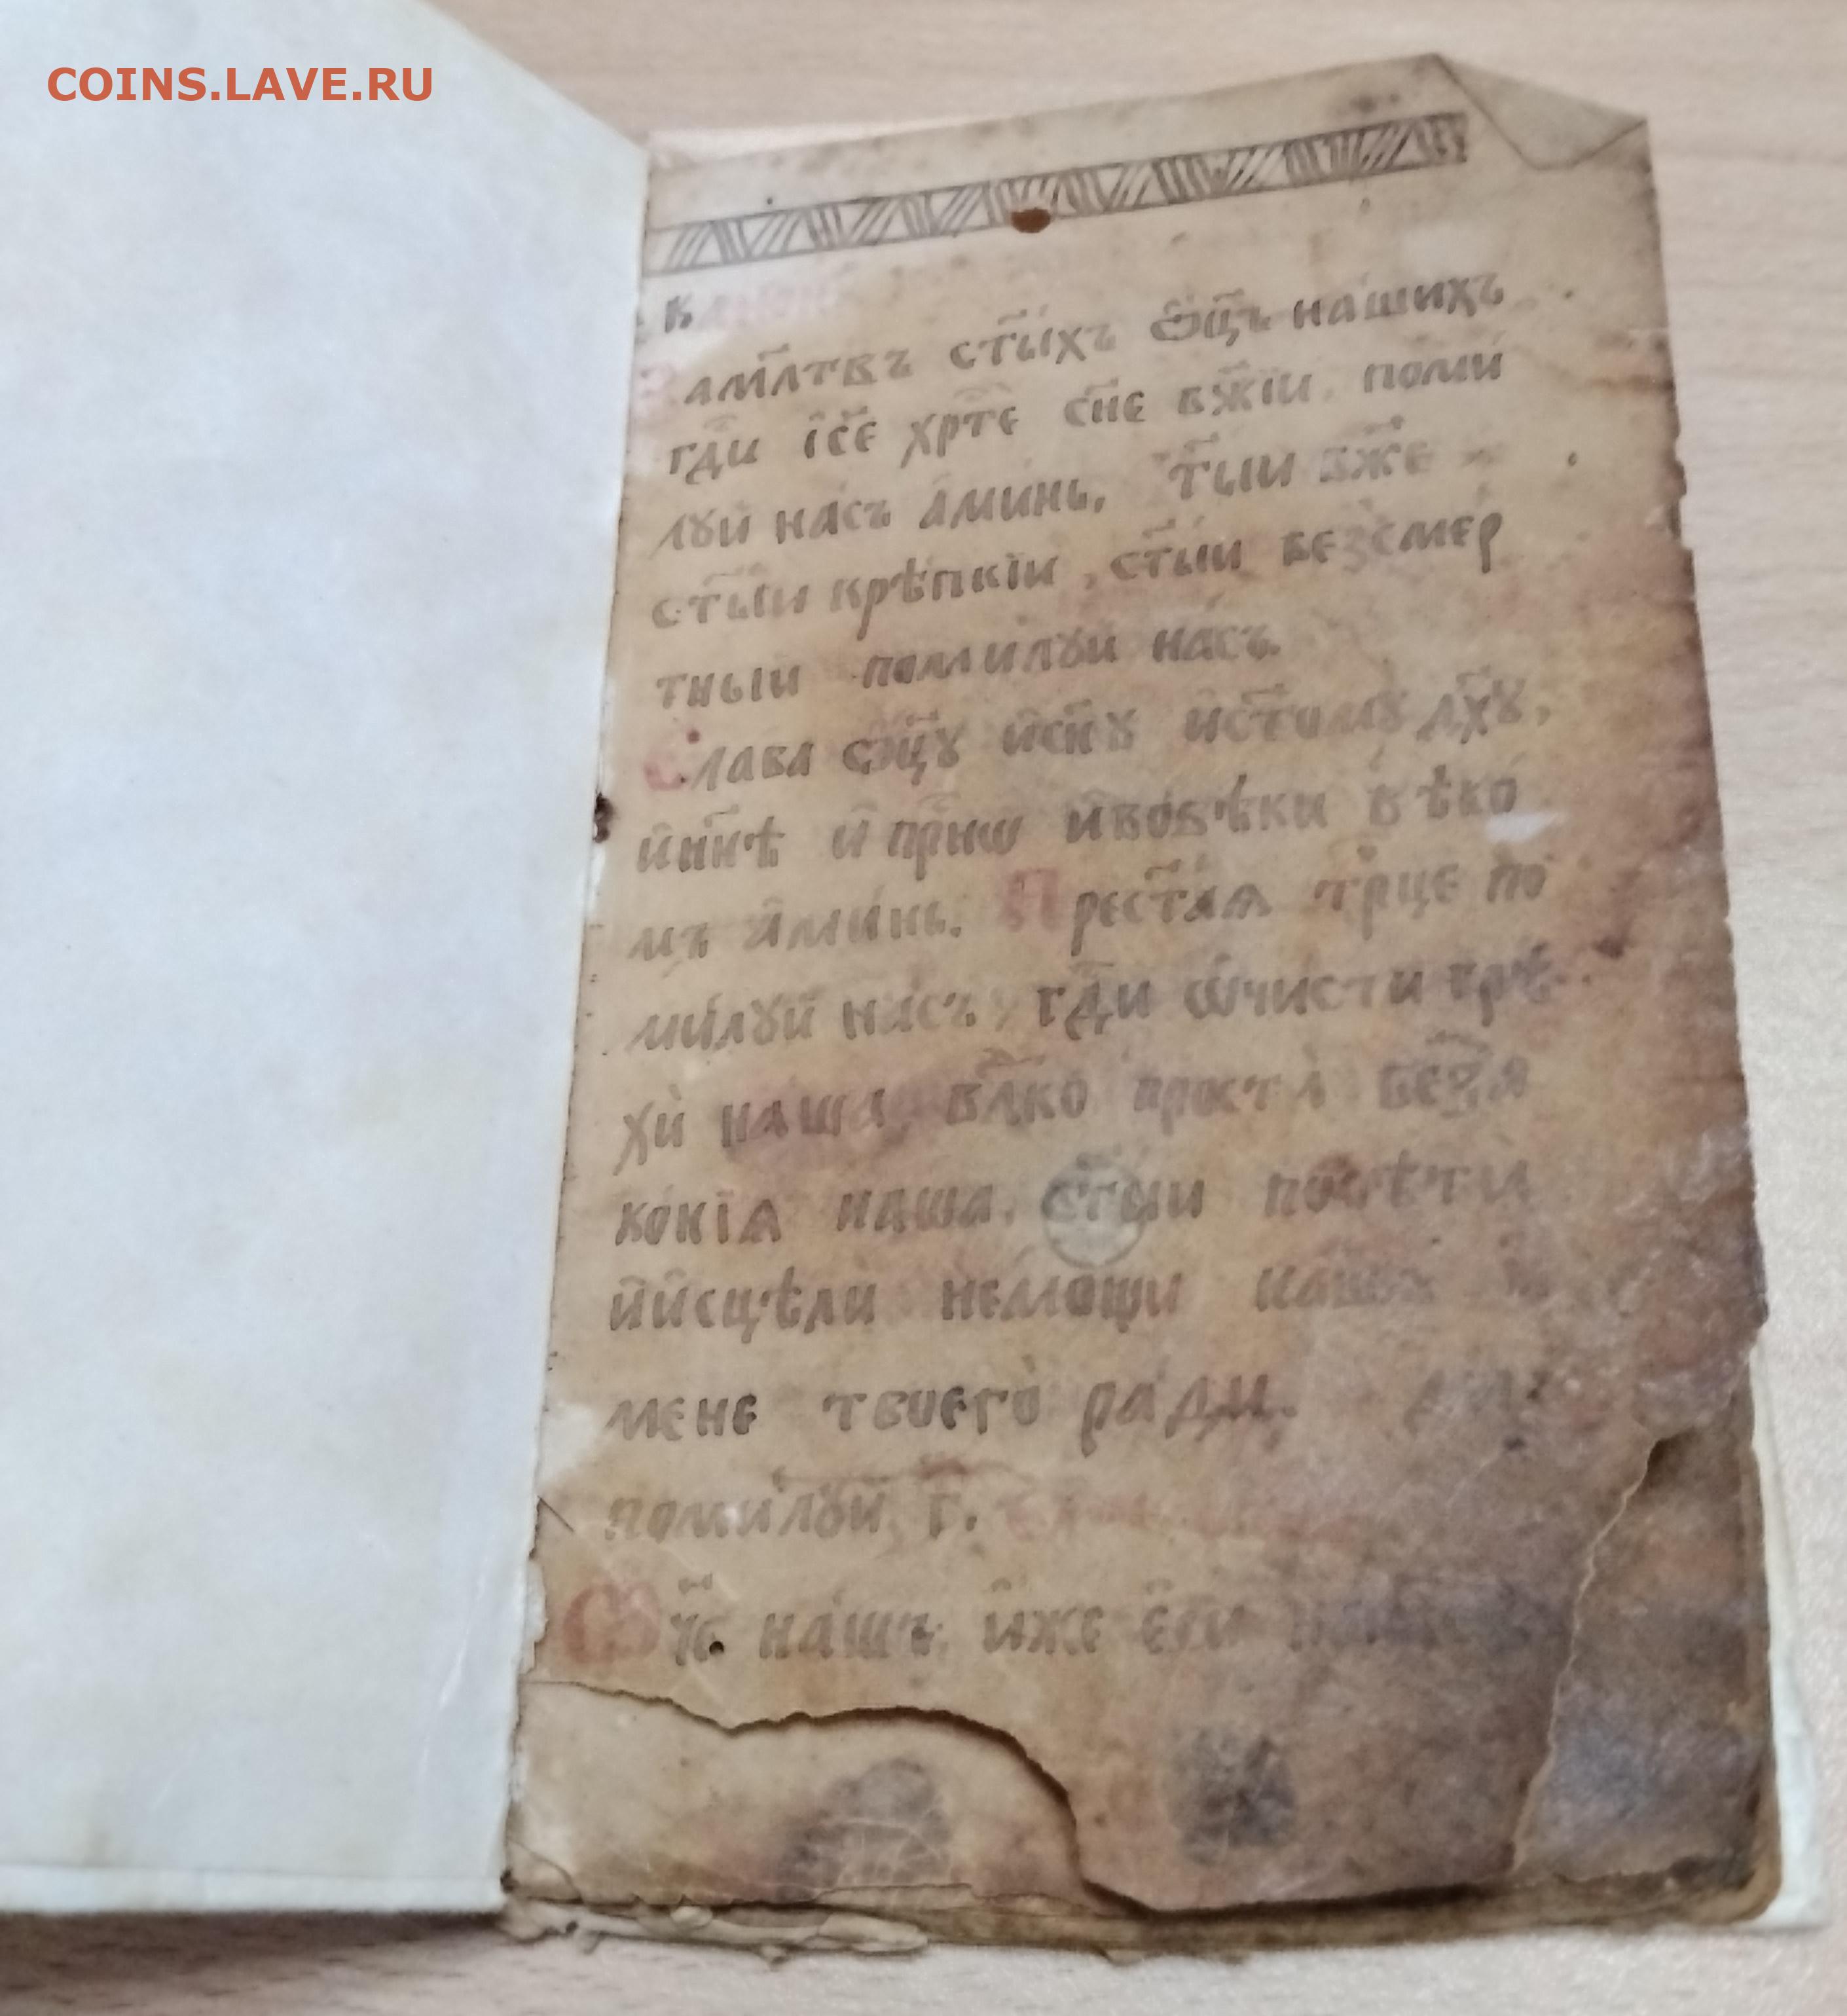 COINS.LAVE.RU
За мл҃твъ ст҃ы́хъ ѻ҆ц҃ъ на́шихъ
гд҃и і҆с҃е хр҃те сн҃е бж҃їи, поми́
лꙋи на́съ а҆ми́нь. ст҃ыи бж҃е
ст҃ыи крѣ́пкїи, ст҃ыи безсме́р
тныи поми́лꙋи на́съ.
Слава ѻ҆ц҃ꙋ и҆сн҃ꙋ и҆ст҃омꙋ дх҃ꙋ,
и҆нн҃ѣ и҆ при҃снѡ и҆вовѣ́ки вѣко́
мъ а҆ми́нь. Прест҃а́ѧ тр҃це по
ми́лꙋи на́съ, гд҃и ѡ҆чи́сти грѣ
хѝ на́ша, вл҃ко простѝ беза
ко́нїѧ на́ша, ст҃ыи посѣтѝ
и҆и҆сцѣли не́мощи на́ша
мене твоегѡ̀ ра́ди.
поми́лꙋи г҃.
Ѿч҃е на́шъ, и҆́же є҆сѝ